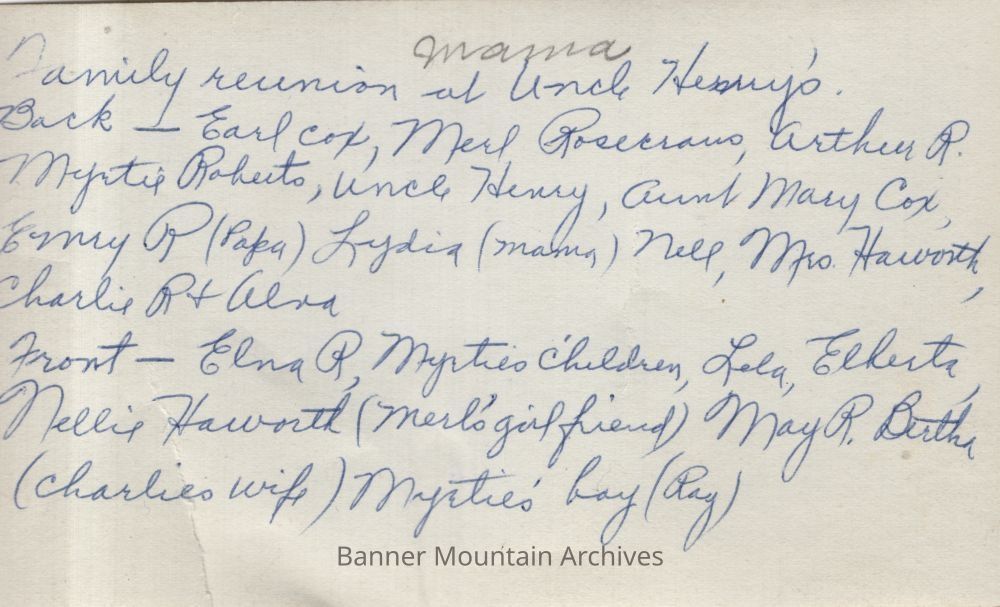 mama
Family reunion at Uncle Henry's.
Back — Earl Cox, Merl Rosecrans, Arthur R.
Myrtie Roberts, Uncle Henry, Aunt Mary Cox,
Emry R (Papa) Lydia (mama) Nell, Mrs. Haworth,
Charlie R + Alva
Front — Elna R, Myrties Children, Lela, Elberta,
Nellie Haworth (Merl's girl friend) May R. Bertha
(Charlies wife) Myrties' boy (Ray)
Banner Mountain Archives